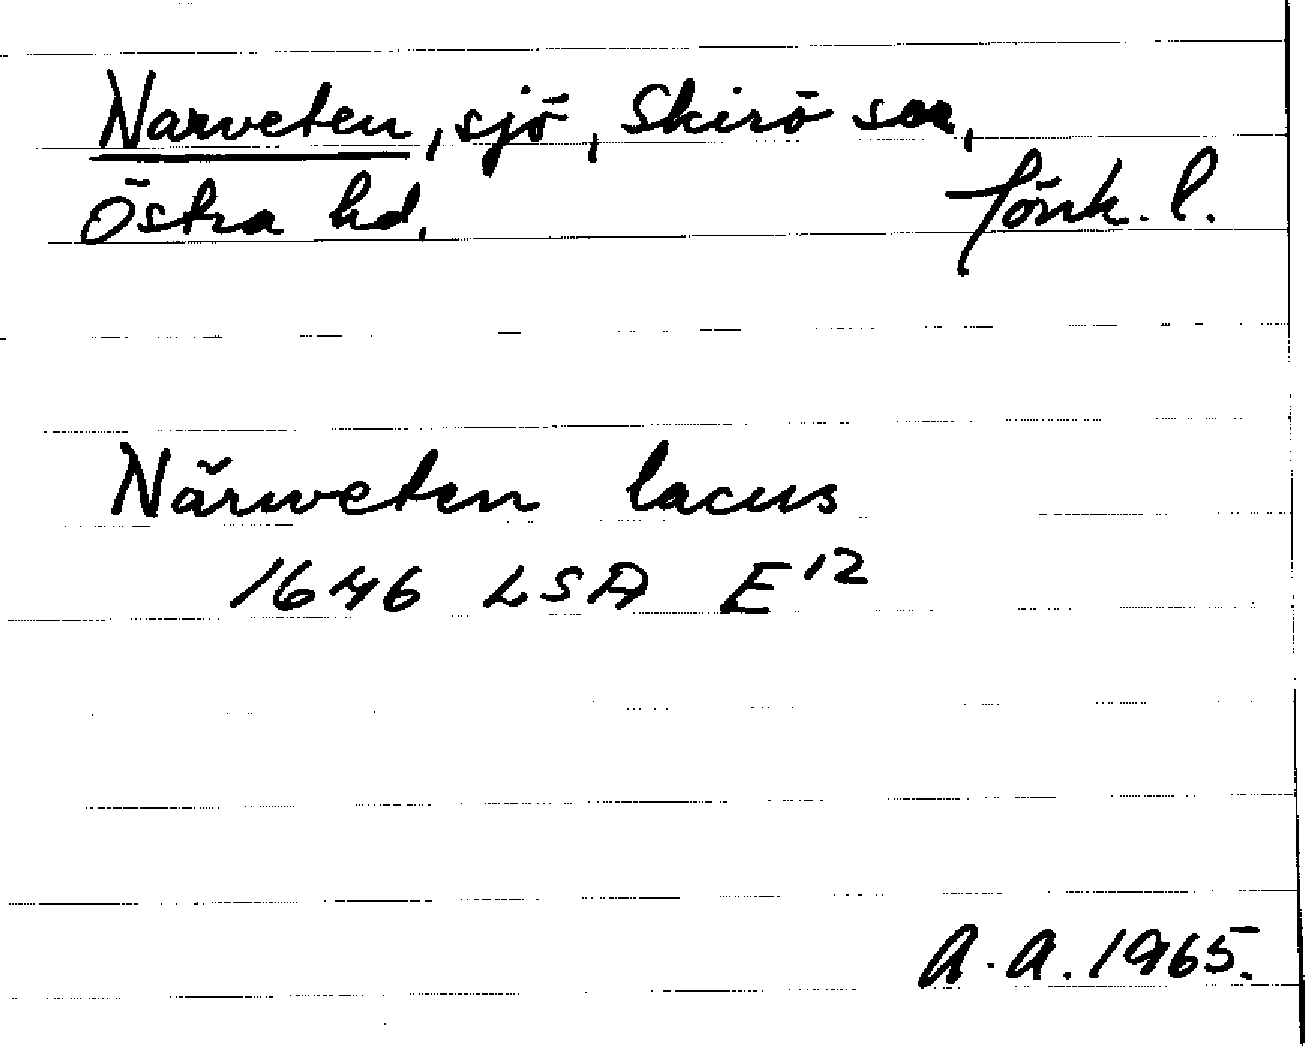 Narveten, sjö, Skirö sn,
Östra hd. Jönk. l.
Närweten lacus
1646 LSA E12
A. A. 1965.